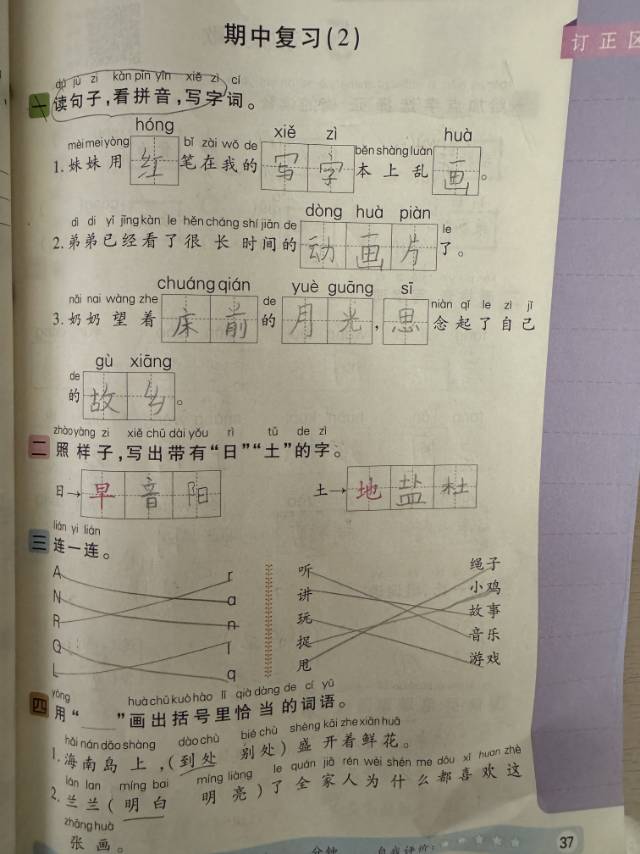 期中复习(2)
订正区
dú jù zi kàn pīn yīn xiě zì cí
一 读句子,看拼音,写字词。
hóng xiě zì huà
mèi mei yòng bǐ zài wǒ de běn shàng luàn
1.妹妹用 红 笔在我的 写 字 本上乱 画 。
dòng huà piàn
dì di yǐ jīng kàn le hěn cháng shí jiān de le
2.弟弟已经看了很长时间的 动 画 片 了。
chuáng qián yuè guāng sī
nǎi nai wàng zhe de niàn qǐ le zì jǐ
3.奶奶望着 床 前 的 月 光 , 思 念起了自己
gù xiāng
de
的 故 乡 。
zhào yàng zi xiě chū dài yǒu rì tǔ de zì
二 照样子,写出带有“日”“土”的字。
日→ 早 音 阳 土→ 地 盐 杜
lián yi lián
三 连一连。
A r 听 绳子
N a 讲 小鸡
R n 玩 故事
Q l 捉 音乐
L q 甩 游戏
yòng huà chū kuò hào lǐ qià dàng de cí yǔ
四 用“____”画出括号里恰当的词语。
hǎi nán dǎo shàng dào chù bié chù shèng kāi zhe xiān huā
1.海南岛上,(到处 别处)盛开着鲜花。
lán lan míng bai míng liàng le quán jiā rén wèi shén me dōu xǐ huan zhè
2.兰兰(明白 明亮)了全家人为什么都喜欢这
zhāng huà
张画。
分钟 自我评价:
37